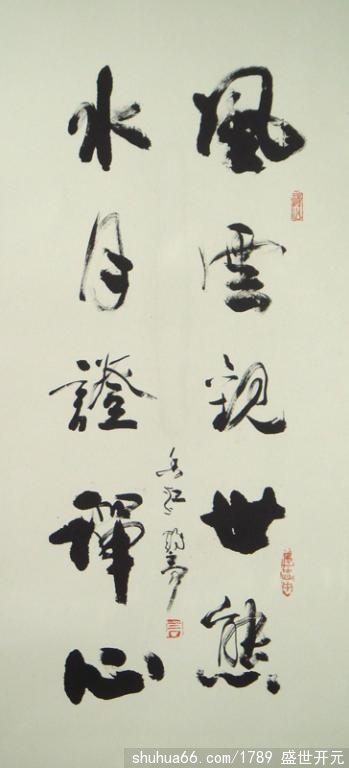 風雲觀世態
水月證禪心
shuhua66.com/1789 盛世开元